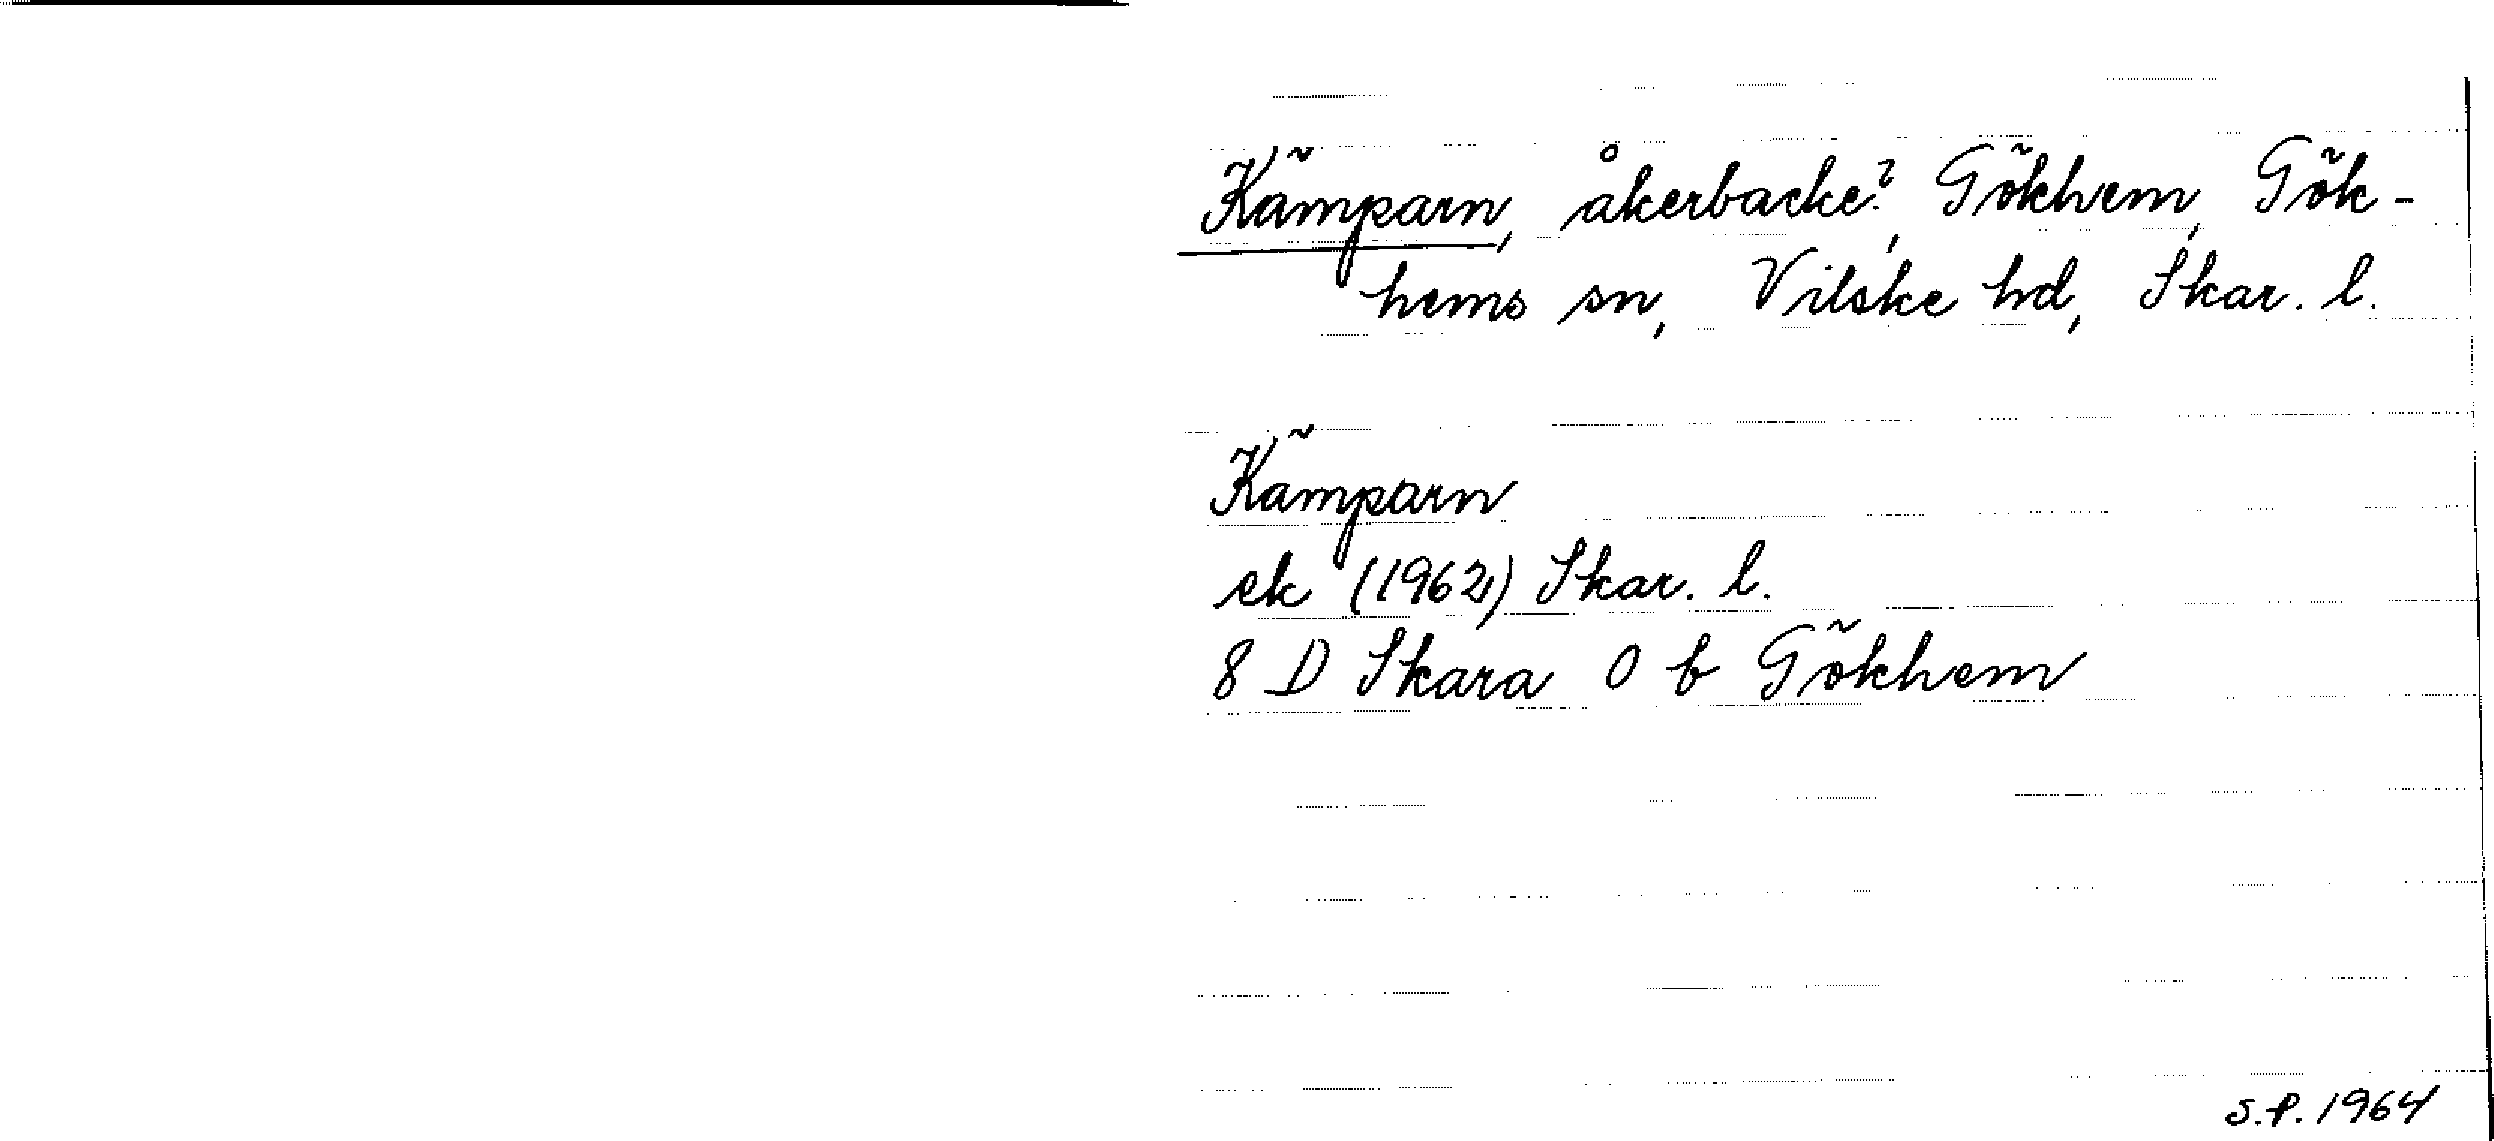 Kämparn, åkerbacke?, Gökhem, Gök-
hems sn, Vilske hd, Skar. l.
Kämparn
ek (1962) Skar. l.
8 D Skara 0 b Gökhem
S.P. 1964